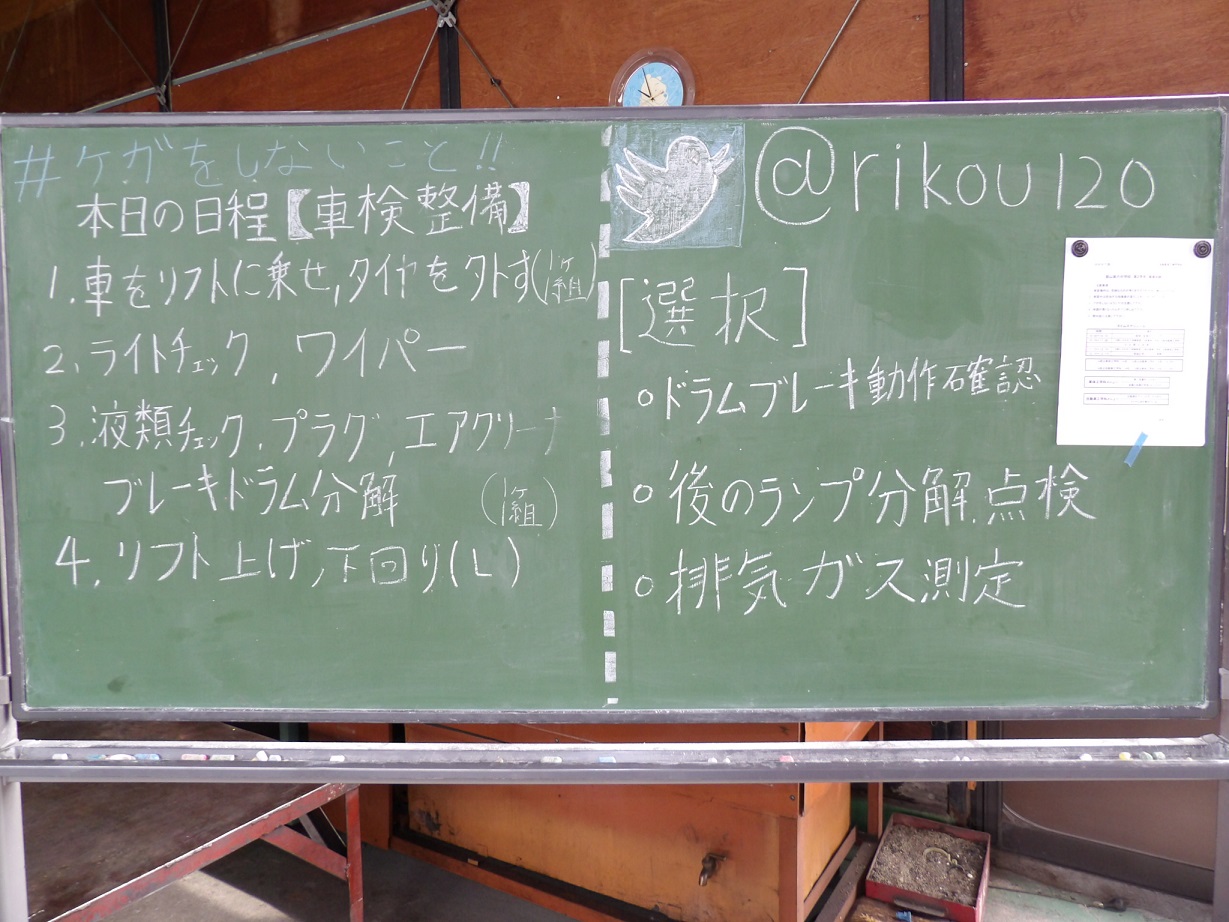 #ケガをしないこと!!
本日の日程【車検整備】
1.車をリフトに乗せ,タイヤを外す(1ヶ組)
2.ライトチェック,ワイパー
3.液類チェック.プラグ,エアクリーナ
ブレーキドラム分解 (1ヶ組)
4.リフト上げ,下回り(L)
@rikou120
[選択]
○ドラムブレーキ動作確認
○後のランプ分解.点検
○排気ガス測定